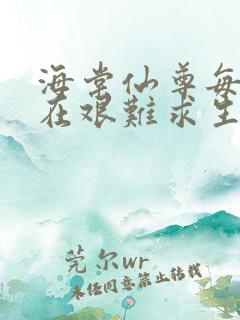 海棠仙尊每
在艰難求生
莞尔wr
未经同意禁止转载